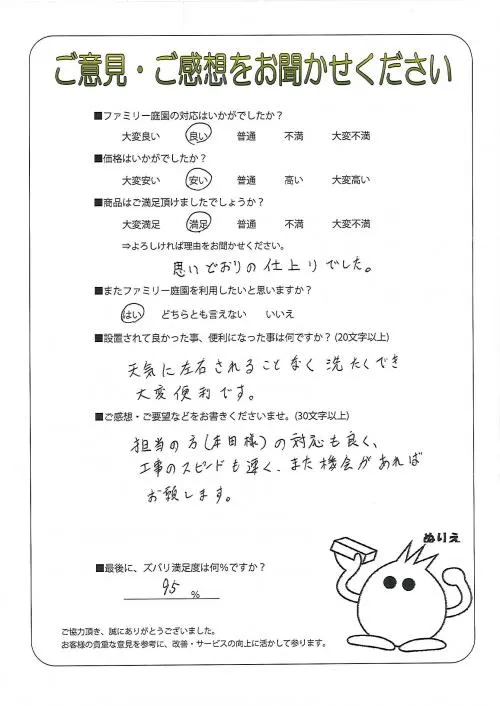 ご意見・ご感想をお聞かせください
■ファミリー庭園の対応はいかがでしたか？
大変良い 良い 普通 不満 大変不満
■価格はいかがでしたか？
大変安い 安い 普通 高い 大変高い
■商品はご満足頂けましたでしょうか？
大変満足 満足 普通 不満 大変不満
⇒よろしければ理由をお聞かせください。
思いどおりの仕上りでした。
■またファミリー庭園を利用したいと思いますか？
はい どちらとも言えない いいえ
■設置されて良かった事、便利になった事は何ですか？(20文字以上)
天気に左右されることなく洗たくでき
大変便利です。
■ご感想・ご要望などをお書きくださいませ。(30文字以上)
担当の方(本田様)の対応も良く、
工事のスピードも速く、また機会があれば
お願します。
ぬりえ
■最後に、ズバリ満足度は何%ですか？
95 %
ご協力頂き、誠にありがとうございました。
お客様の貴重な意見を参考に、改善・サービスの向上に活かして参ります。